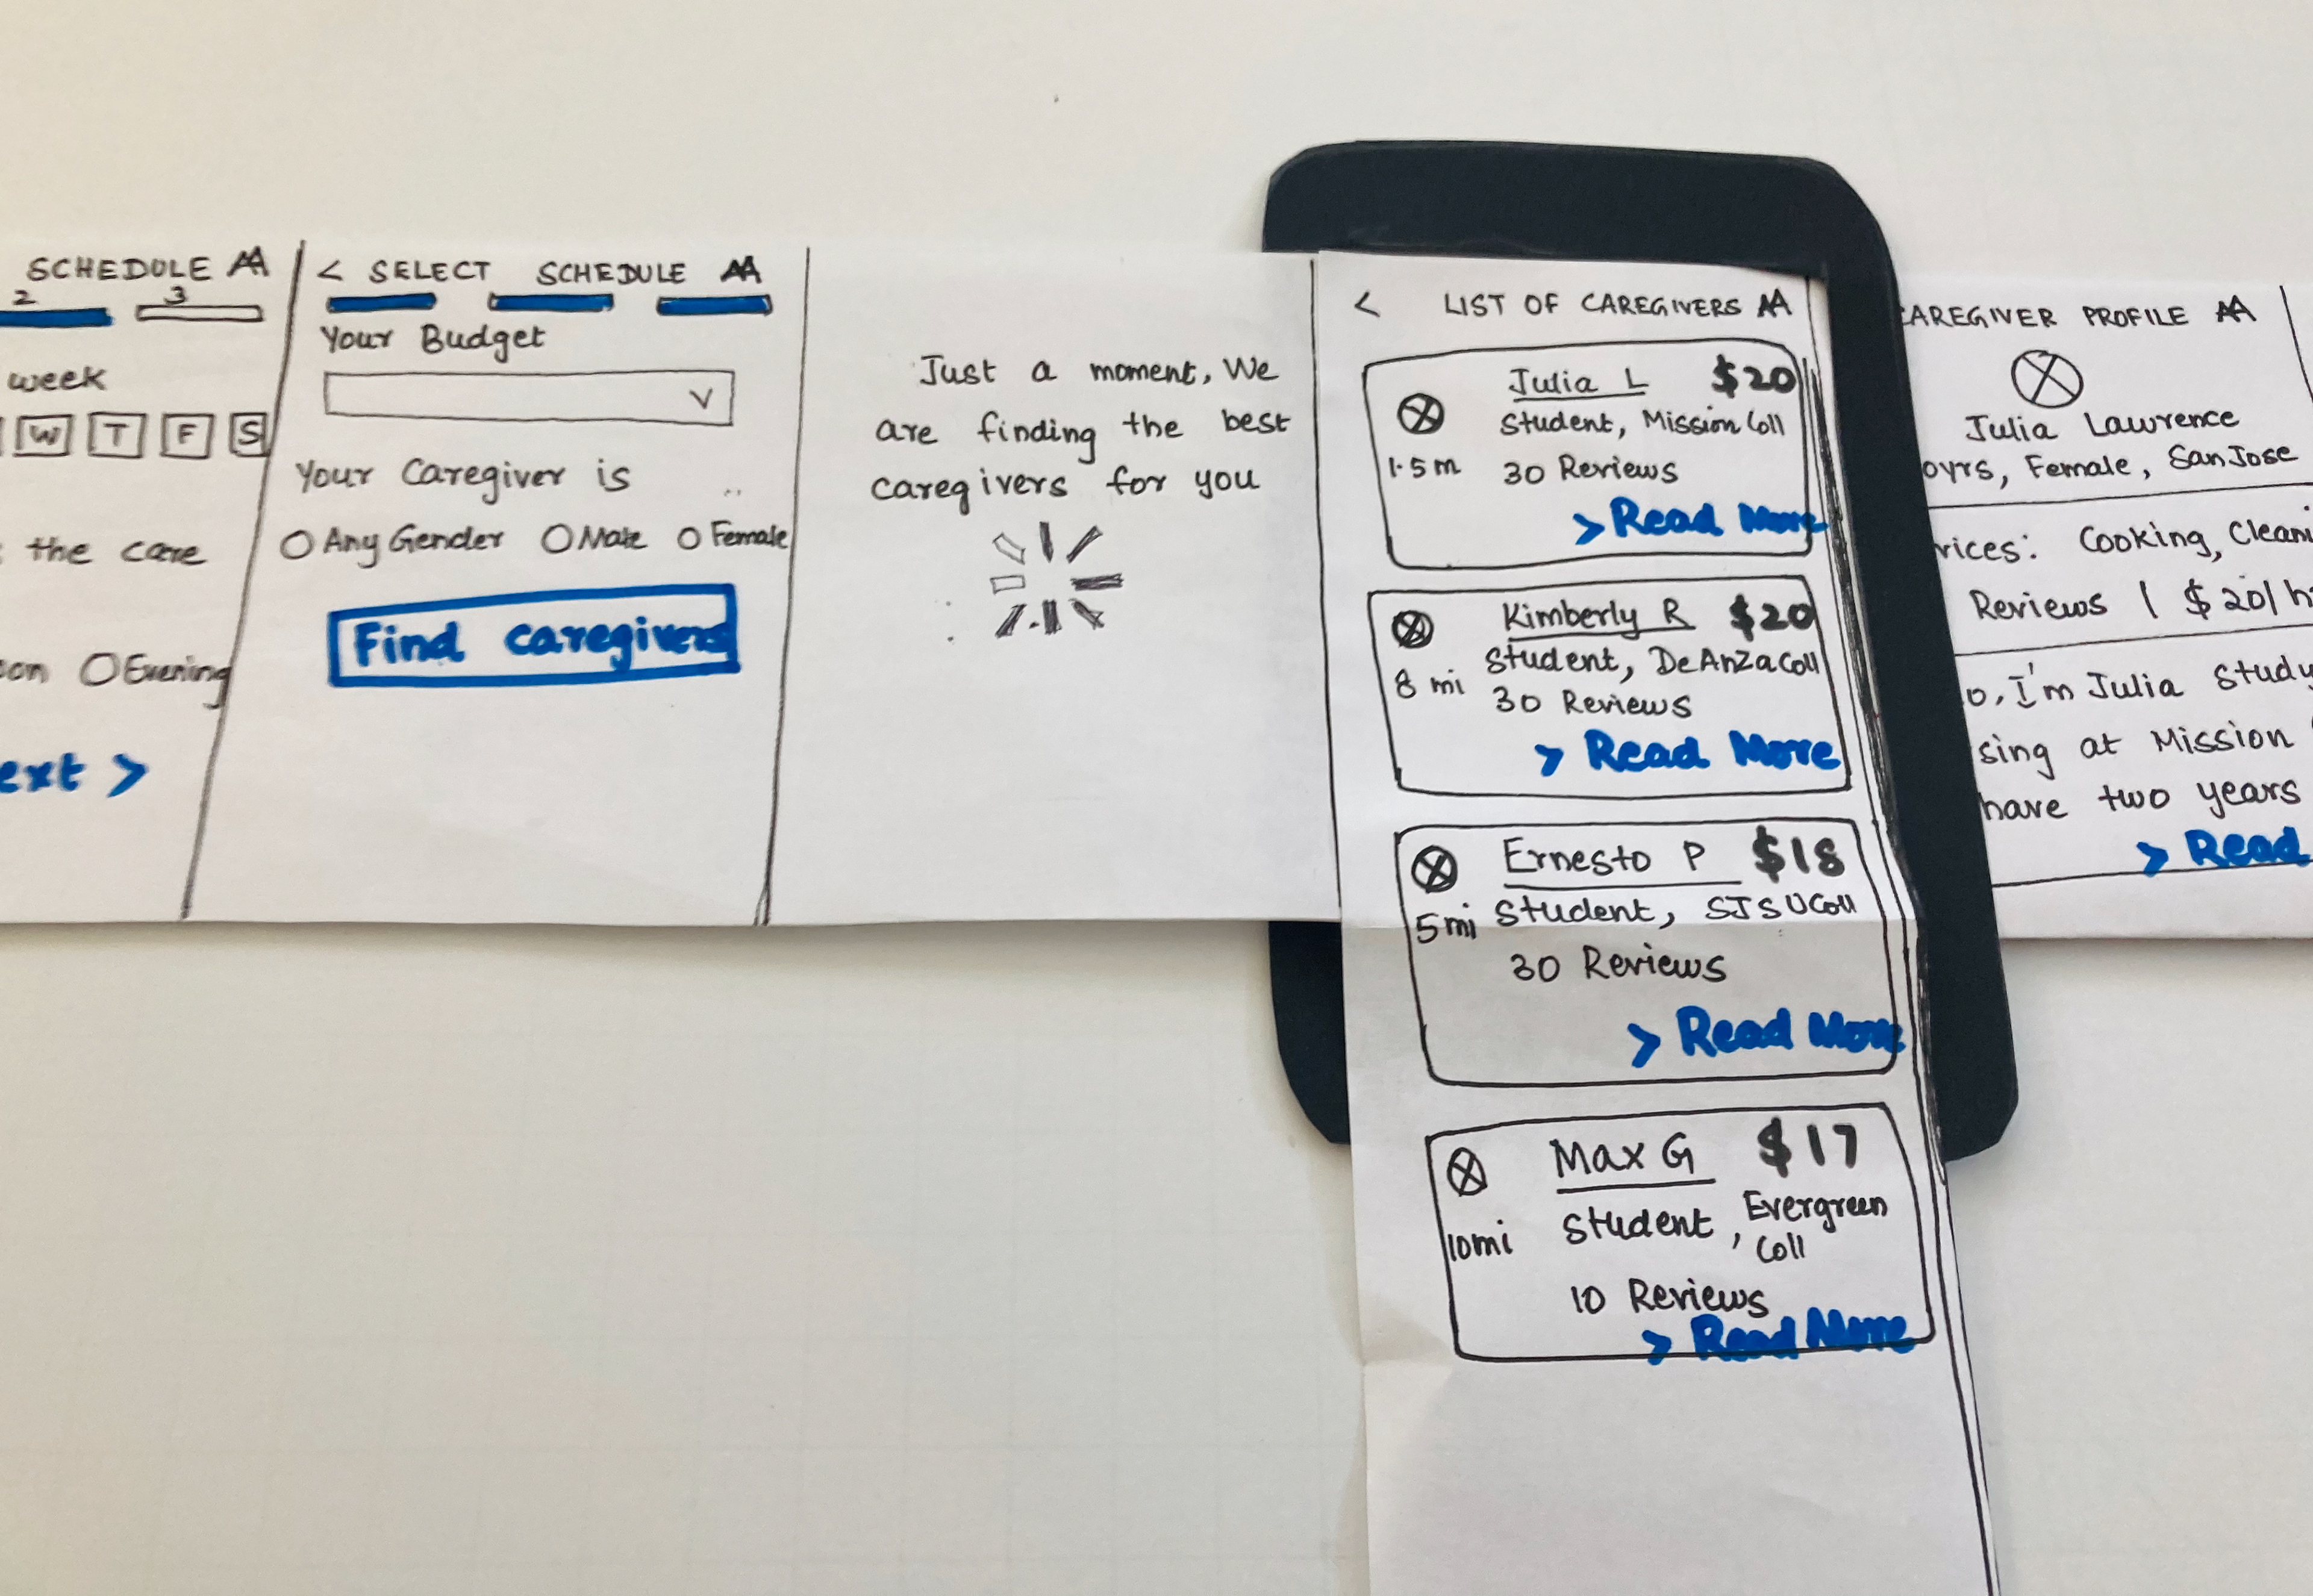 SCHEDULE AA
2 3
week
W T F S
the care
Evening
ext >
< SELECT SCHEDULE AA
Your Budget
V
Your Caregiver is
Any Gender Male Female
Find caregivers
Just a moment, We
are finding the best
caregivers for you
< LIST OF CAREGIVERS AA
Julia L $20
Student, Mission Coll
1.5 m 30 Reviews
> Read More
Kimberly R $20
Student, De Anza Coll
8 mi 30 Reviews
> Read More
Ernesto P $18
5mi Student, SJSU Coll
30 Reviews
> Read More
Max G $17
10mi Student, Evergreen
Coll
10 Reviews
> Read More
AREGIVER PROFILE AA
Julia Lawrence
oyrs, Female, San Jose
vices: Cooking, Cleani
Reviews | $20/h
o, I'm Julia Study
sing at Mission
have two years
> Read